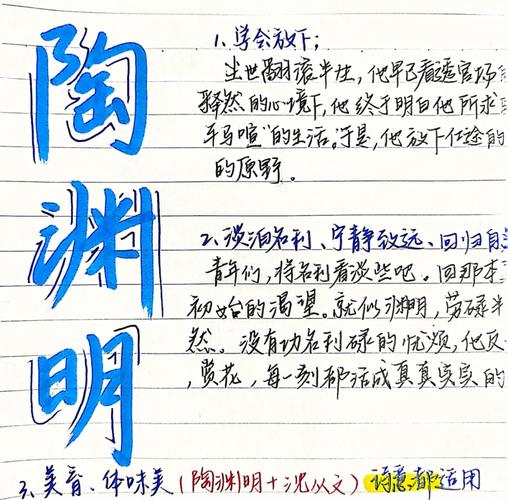 陶渊明
1、学会放下；
尘世翻滚半生，他早已看透官场
释然的心境下，他终于明白他所求
车马喧"的生活。于是，他放下仕途的
的原野。
2、淡泊名利、宁静致远、回归自
青年们，将名利看淡些吧。回那本
初始的渴望。就似渊明，劳碌半
然。没有功名利碌的忧烦，他
，赏花，每一刻都活成真真实实的
3、美育、体味美（陶渊明+沈从文）诗意都适用